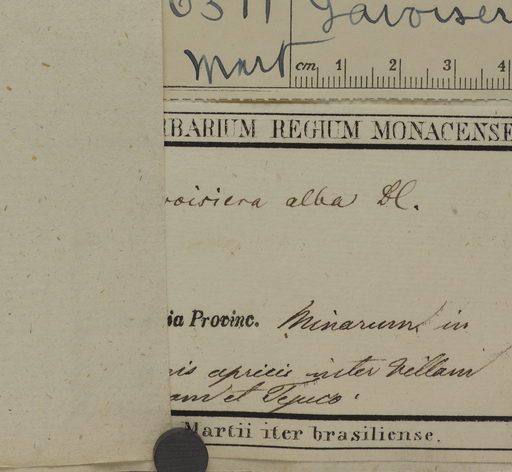 6511 Lavoiser
Mart
cm 1 2 3 4
RBARIUM REGIUM MONACENSE
voisiera alba DC.
ia Provinc. Minarum, in
nis apricis inter Villam
am et Tejuco.
Martii iter brasiliense.